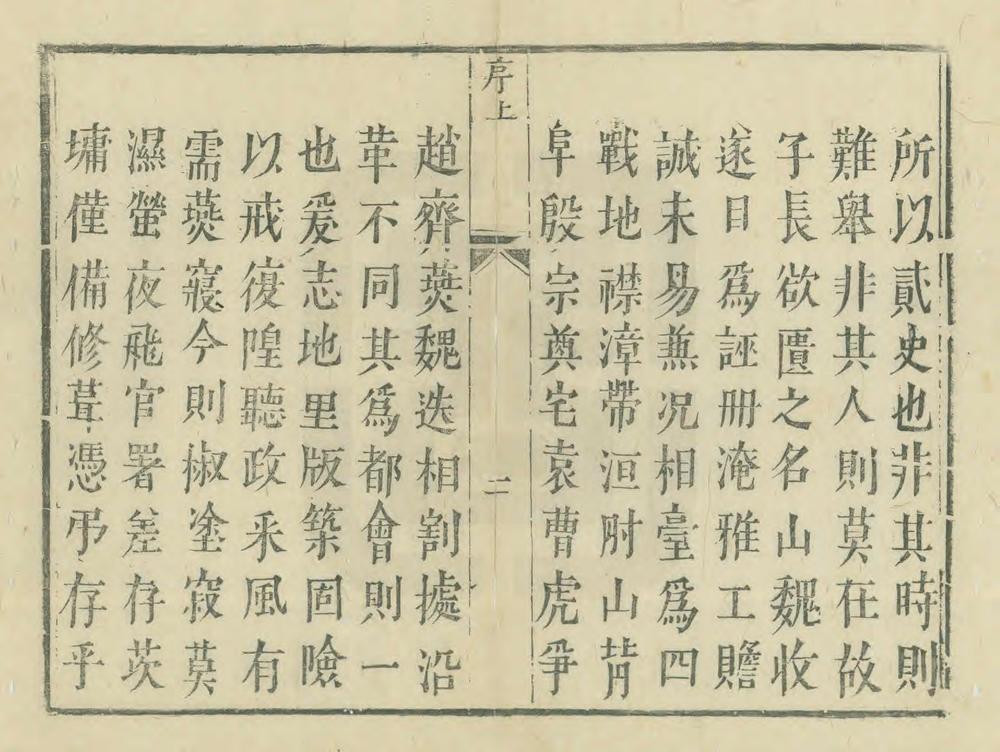 所以貳史也非其時則
難舉非其人則莫在故
子長欲匱之名山魏收
遂目為誣冊淹雅工贍
誠未易兼况相臺為四
戰地襟漳帶洹肘山背
阜殷宗奠宅袁曹虎爭
序上
二
趙齊燕魏迭相割據沿
革不同其為都會則一
也爰志地里版築固險
以戒復隍聽政采風有
需燕寢今則椒塗寂莫
濕螢夜飛官署差存茨
墉僅備修葺憑弔存乎